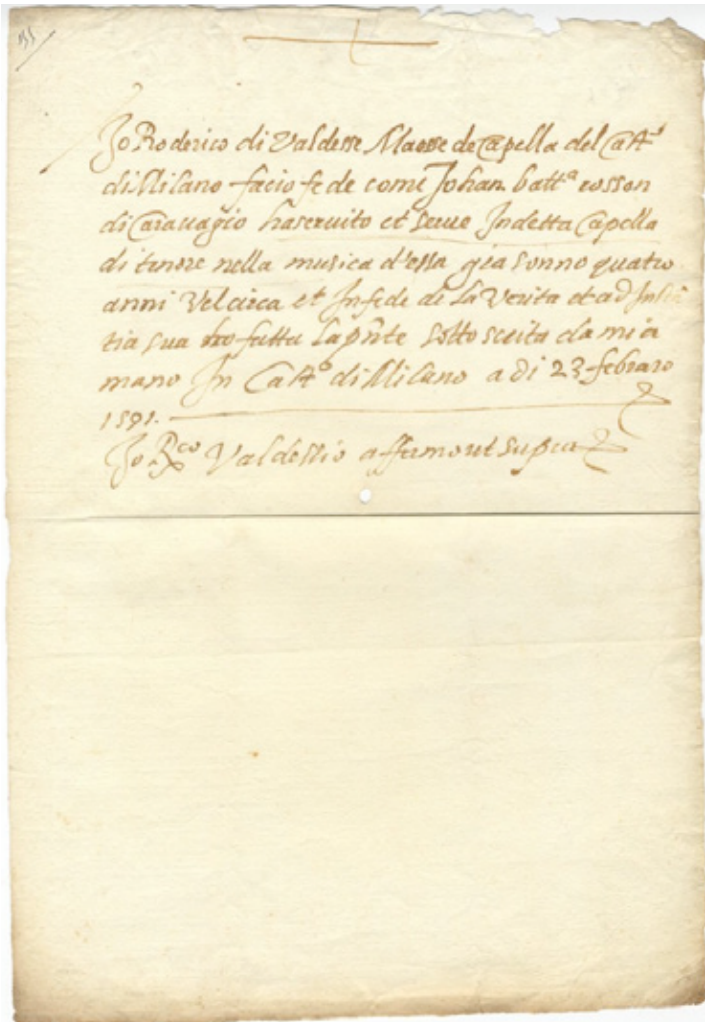 Jo Roderico di Valdesse Maesse de Capella del Castº
di Milano facio fede come Johan battª rosson
di Carauagio ha seruito et serue In detta Capella
di tenore nella musica d'essa gia sonno quatro
anni Vel circa et In fede di La Verita et ad Instã
tia sua ho fatta la pñte sotto scrita da mia
mano In Castº di Milano a di 23 febraro
1591.
Jo Rco Valdessio affermo ut supra